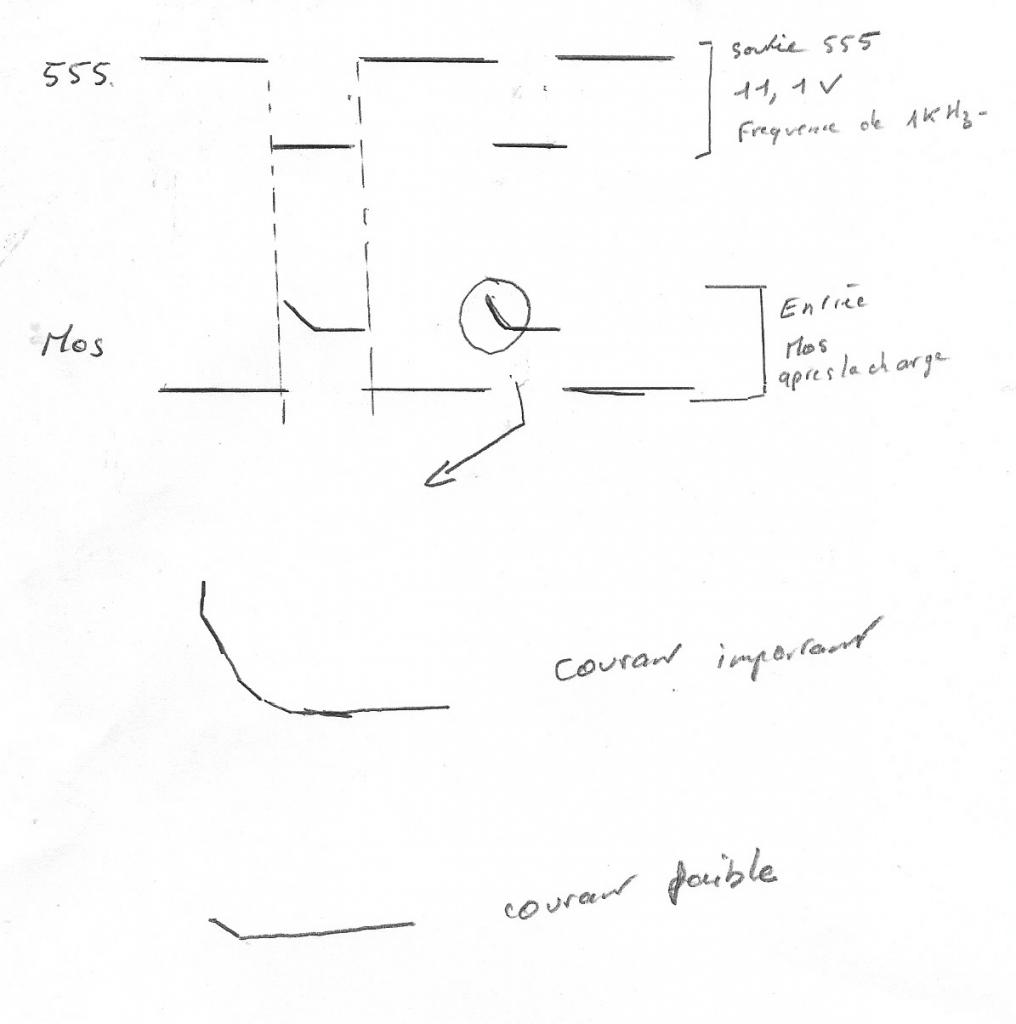 555.
sortie 555
11,1V
Frequence de 1KHz-
Mos
Entrée
Mos
apres la charge
Courant important
courant faible